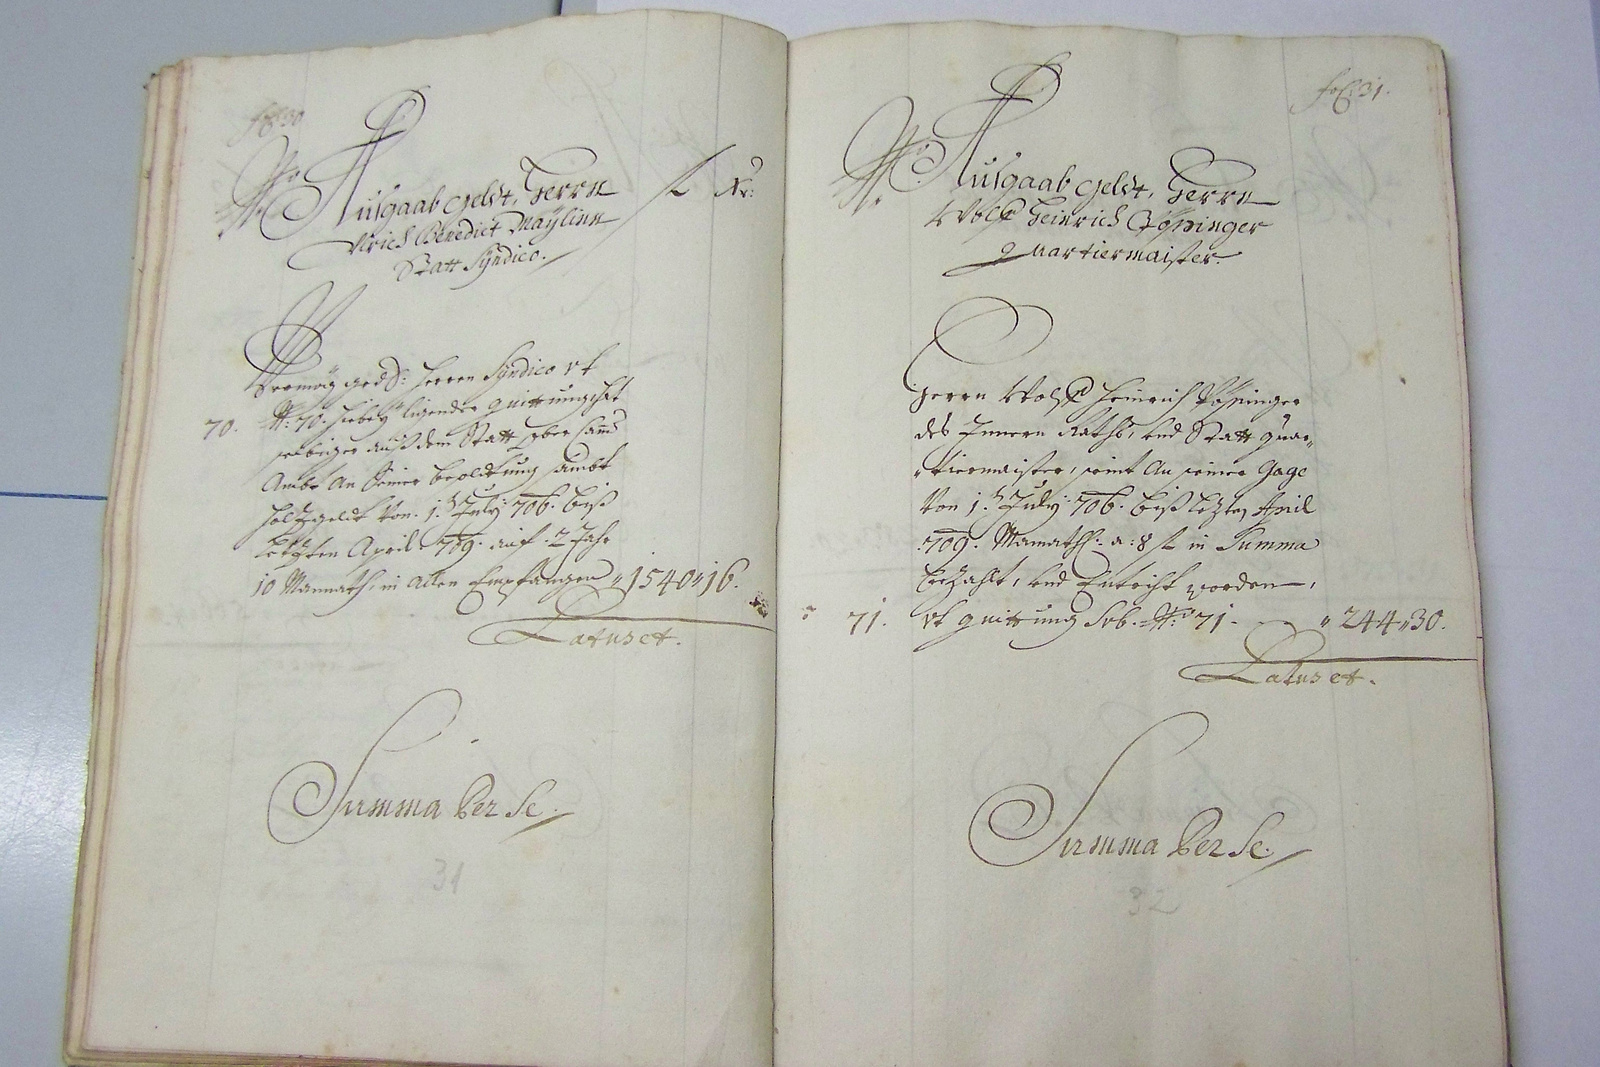 fol: 30
No: Ausgaab Geldt, Herrn
fl Kr:
Ulrich Benedict Maÿlinn
Statt Sÿndico.
Vermög gedd: Herren Sÿndico
70. No: 70. hiebeÿ ligender Quittung hat
selbiger auß dem Statt Ober Camer
Ambt An Seiner besoldtung sambt
Holtzgeldt Von 1. July 706. biß
letzten April 709. auf 2 Jahr
10 Monnath, in Allen Empfangen 1540 16.
Latus et.
Summa Per Se.
31
fol: 31.
No: Ausgaab Geldt, Herrn
Wolf Heinrich
Quartiermaister.
Herrn Wolf Heinrich
des Innern Raths, und Statt Quar-
tiermaister, seint An seiner Gage
Von 1. July 706. biß letzten April
709. Monathl: a: 8 fl in Summa
bezahlt, und Entricht worden,
71. Quittung Sub. No: 71. 244 30.
Latus et.
Summa Per Se.
32